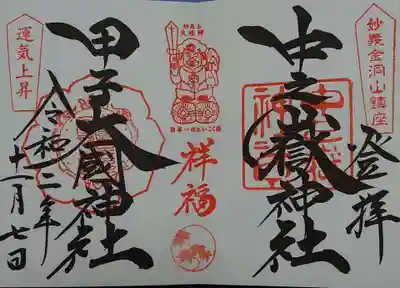 妙義金洞山鎮座
登拝
中之嶽神社
妙義山
大黒神
日本一のだいこく様
祥福
甲子大國神社
運気上昇
令和二年
十一月七日